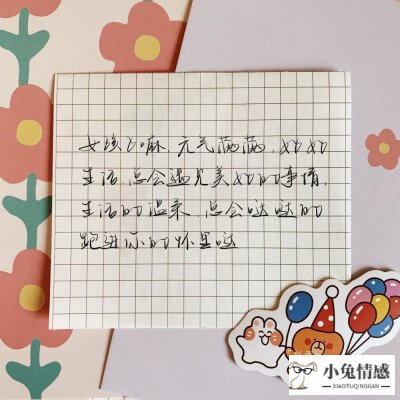 女孩子嘛 元气满满，好好
生活，总会遇见美好的事情，
生活的温柔，总会哒哒的
跑进你的怀里哒
小兔情感
XIAOTUQINGGAN